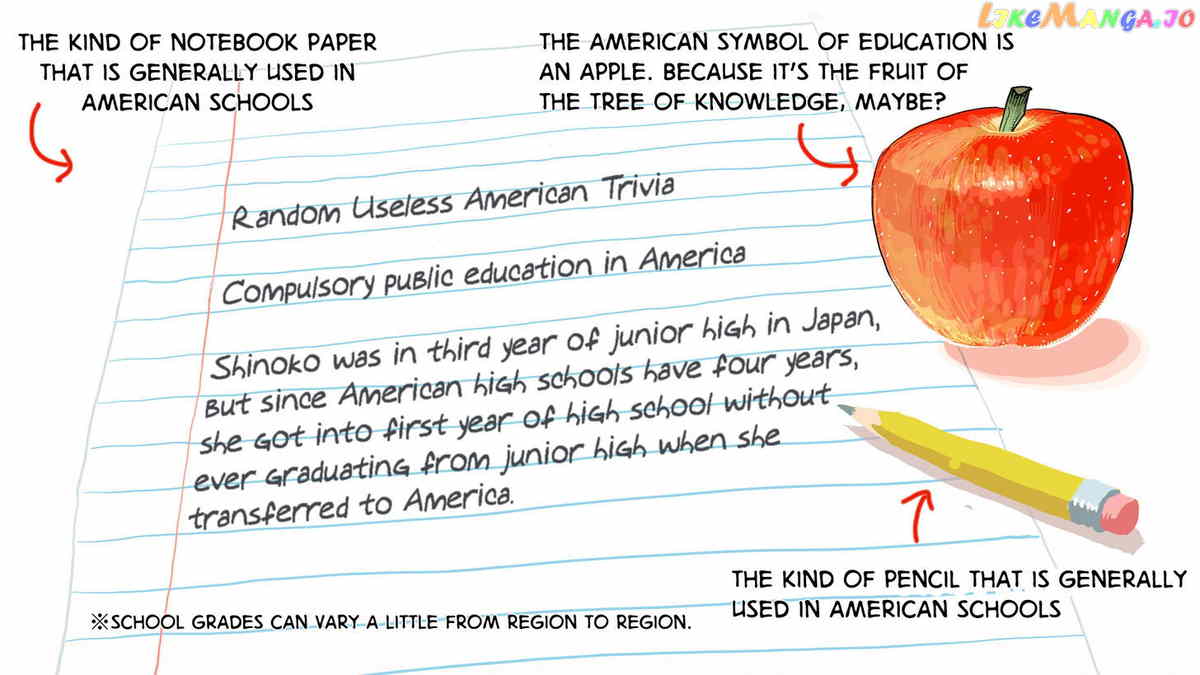 LIKEMANGA.IO
THE KIND OF NOTEBOOK PAPER
THAT IS GENERALLY USED IN
AMERICAN SCHOOLS
THE AMERICAN SYMBOL OF EDUCATION IS
AN APPLE. BECAUSE IT'S THE FRUIT OF
THE TREE OF KNOWLEDGE, MAYBE?
Random Useless American Trivia
Compulsory public education in America
Shinoko was in third year of junior high in Japan,
But since American high schools have four years,
she got into first year of high school without
ever graduating from junior high when she
transferred to America.
THE KIND OF PENCIL THAT IS GENERALLY
USED IN AMERICAN SCHOOLS
※SCHOOL GRADES CAN VARY A LITTLE FROM REGION TO REGION.